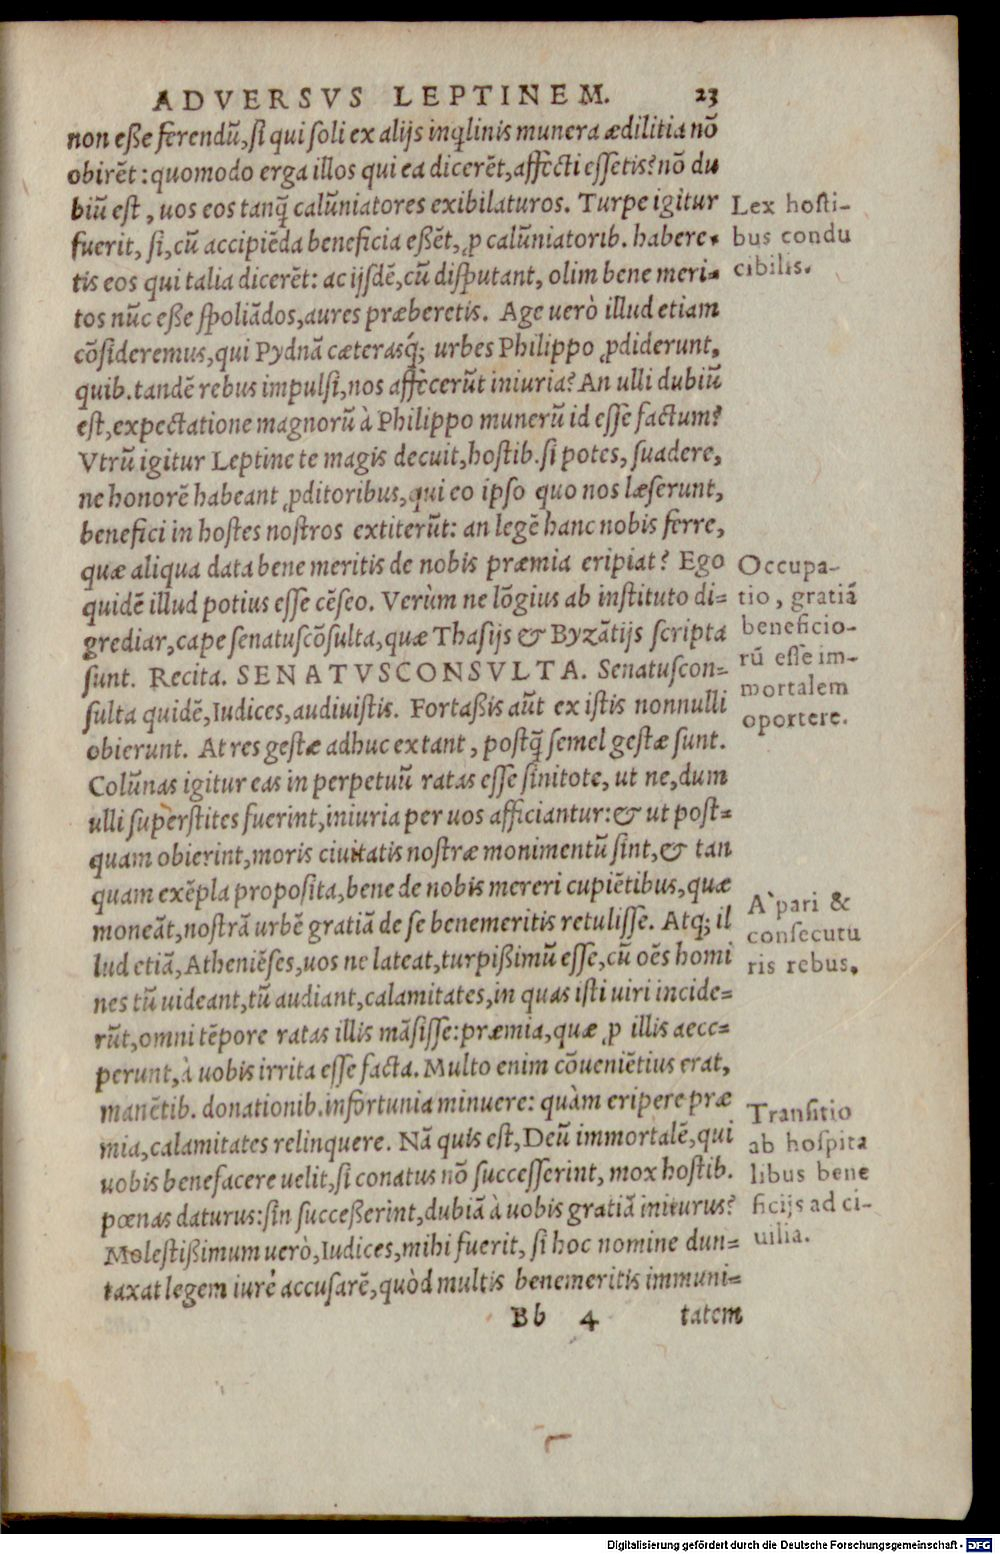 ADVERSVS LEPTINEM. 23
non eſſe ferendũ, ſi qui ſoli ex alijs inq̃linis munera ædilitia nõ
obirẽt: quomodo erga illos qui ea dicerẽt, affecti eſſetis? nõ du
biũ eſt, uos eos tanq̃ calũniatores exibilaturos. Turpe igitur
fuerit, ſi, cũ accipiẽda beneficia eßẽt, ꝓ calũniatorib. habere-
tis eos qui talia dicerẽt: ac ijſdẽ, cũ diſputant, olim bene meri-
tos nũc eße ſpoliãdos, aures præberetis. Age uerò illud etiam
cõſideremus, qui Pydnã cæterasq́; urbes Philippo ꝓdiderunt,
quib. tandẽ rebus impulſi, nos affecerũt iniuria? An ulli dubiũ
eſt, expectatione magnorũ à Philippo munerũ id eſſe factum?
Vtrũ igitur Leptine te magis decuit, hoſtib. ſi potes, ſuadere,
ne honorẽ habeant ꝓditoribus, qui eo ipſo quo nos læſerunt,
benefici in hoſtes noſtros extiterũt: an legẽ hanc nobis ferre,
quæ aliqua data bene meritis de nobis præmia eripiat? Ego
quidẽ illud potius eſſe cẽſeo. Verùm ne lõgius ab inſtituto di-
grediar, cape ſenatuſcõſulta, quæ Thaſijs & Byzãtijs ſcripta
ſunt. Recita. SENATVSCONSVLTA. Senatuſcon-
ſulta quidẽ, Iudices, audiuiſtis. Fortaßis aũt ex iſtis nonnulli
obierunt. At res geſtæ adhuc extant, poſtq̃ ſemel geſtæ ſunt.
Colũnas igitur eas in perpetuũ ratas eſſe ſinitote, ut ne, dum
ulli ſuperſtites fuerint, iniuria per uos afficiantur: & ut poſt-
quam obierint, moris ciuitatis noſtræ monimentũ ſint, & tan
quam exẽpla propoſita, bene de nobis mereri cupiẽtibus, quæ
moneãt, noſtrã urbẽ gratiã de ſe benemeritis retuliſſe. Atq; il
lud etiã, Atheniẽſes, uos ne lateat, turpißimũ eſſe, cũ oẽs homi
nes tũ uideant, tũ audiant, calamitates, in quas iſti uiri incide-
rũt, omni tẽpore ratas illis mãſiſſe: præmia, quæ ꝓ illis aecc-
perunt, à uobis irrita eſſe facta. Multo enim cõueniẽtius erat,
manẽtib. donationib. infortunia minuere: quàm eripere præ
mia, calamitates relinquere. Nã quis eſt, Deũ immortalẽ, qui
uobis benefacere uelit, ſi conatus nõ ſucceſſerint, mox hoſtib.
pœnas daturus: ſin ſucceßerint, dubiã à uobis gratiã initurus?
Moleſtißimum uerò, Iudices, mihi fuerit, ſi hoc nomine dun-
taxat legem iurè accuſarẽ, quòd multis benemeritis immuni-
Bb 4 tatem
Lex hoſti-
bus condu
cibilis.
Occupa-
tio, gratiã
beneficio-
rũ eſſe im-
mortalem
oportere.
A' pari &
conſecutu
ris rebus.
Tranſitio
ab hoſpita
libus bene
ficijs ad ci-
uilia.
Digitalisierung gefördert durch die Deutsche Forschungsgemeinschaft - DFG